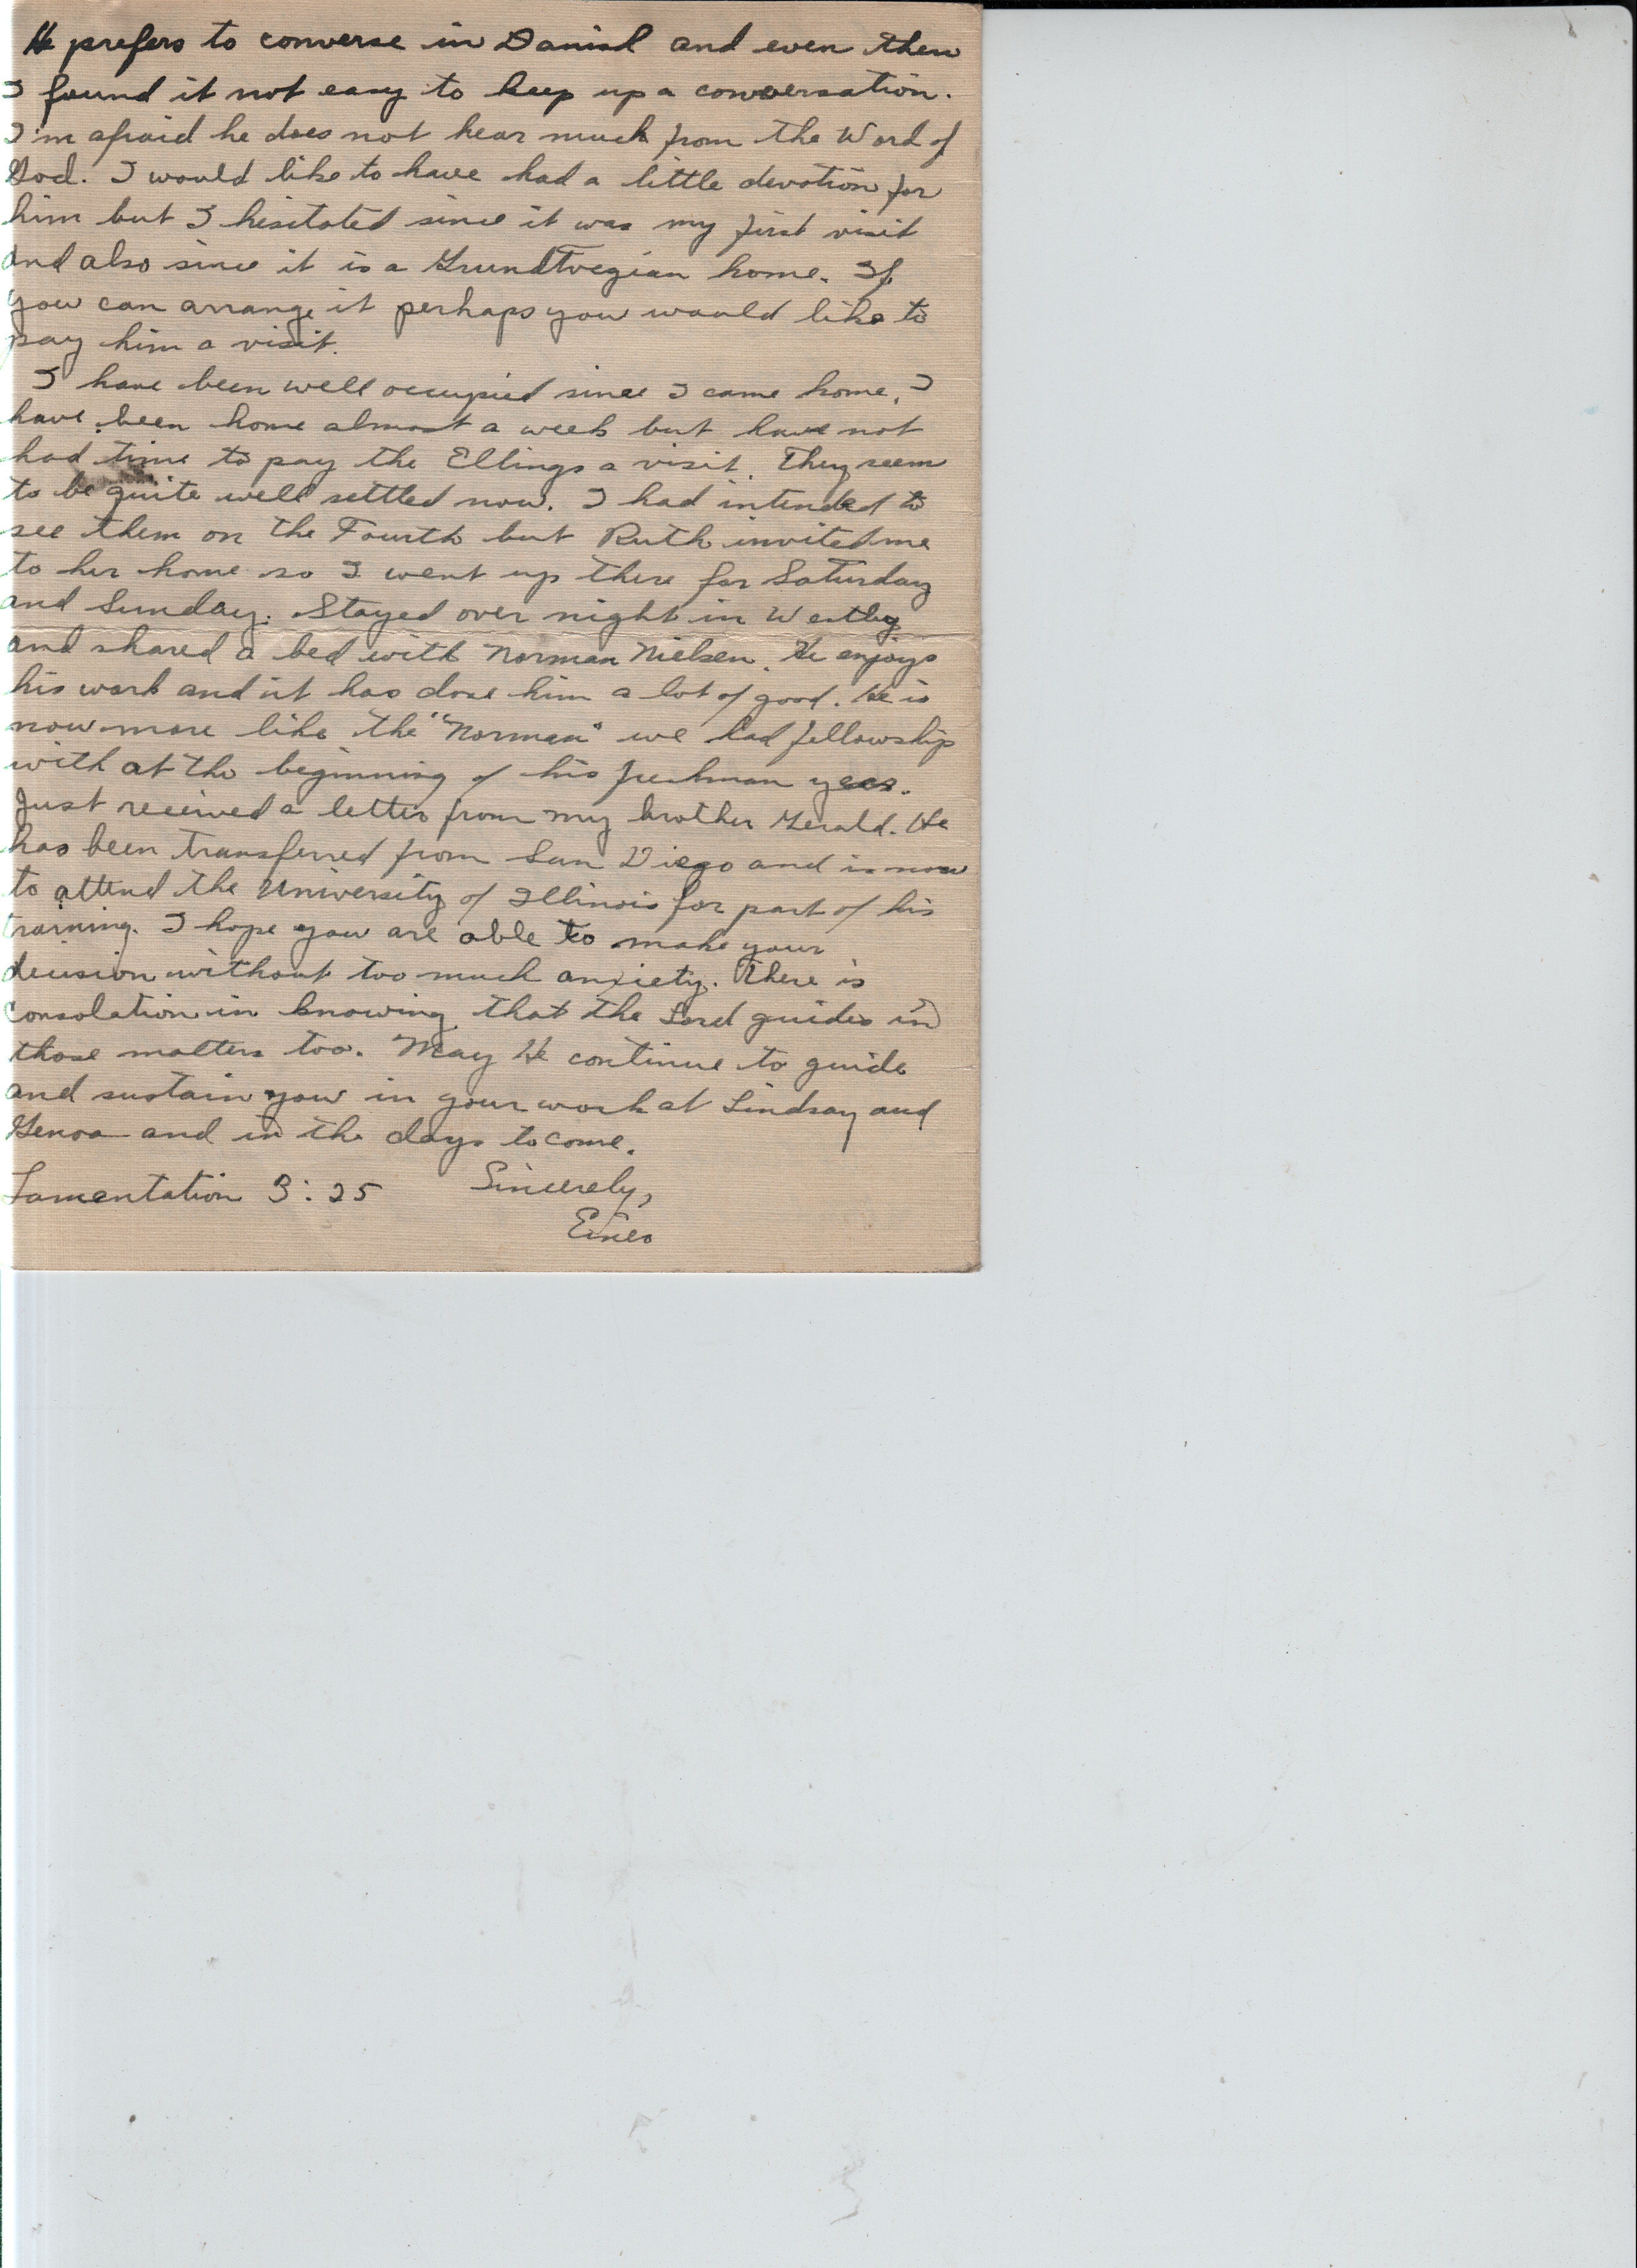 He prefers to converse in Danish and even then
I found it not easy to keep up a conversation.
I'm afraid he does not hear much from the Word of
God. I would like to have had a little devotion for
him but I hesitated since it was my first visit
and also since it is a Grundtvegian home. If
you can arrange it perhaps you would like to
pay him a visit.
I have been well occupied since I came home. I
have been home almost a week but have not
had time to pay the Ellings a visit. They seem
to be quite well settled now. I had intended to
see them on the Fourth but Ruth invited me
to her home so I went up there for Saturday
and Sunday. Stayed over night in Westby
and shared a bed with Norman Nielsen. He enjoys
his work and it has done him a lot of good. He is
now more like the "Norman" we had fellowship
with at the beginning of his freshman year.
Just received a letter from my brother Gerald. He
has been transferred from San Diego and is now
to attend the University of Illinois for part of his
training. I hope you are able to make your
decision without too much anxiety. There is
consolation in knowing that the Lord guides in
those matters too. May He continue to guide
and sustain you in your work at Lindsay and
Genoa and in the days to come.
Lamentation 3:25 Sincerely,